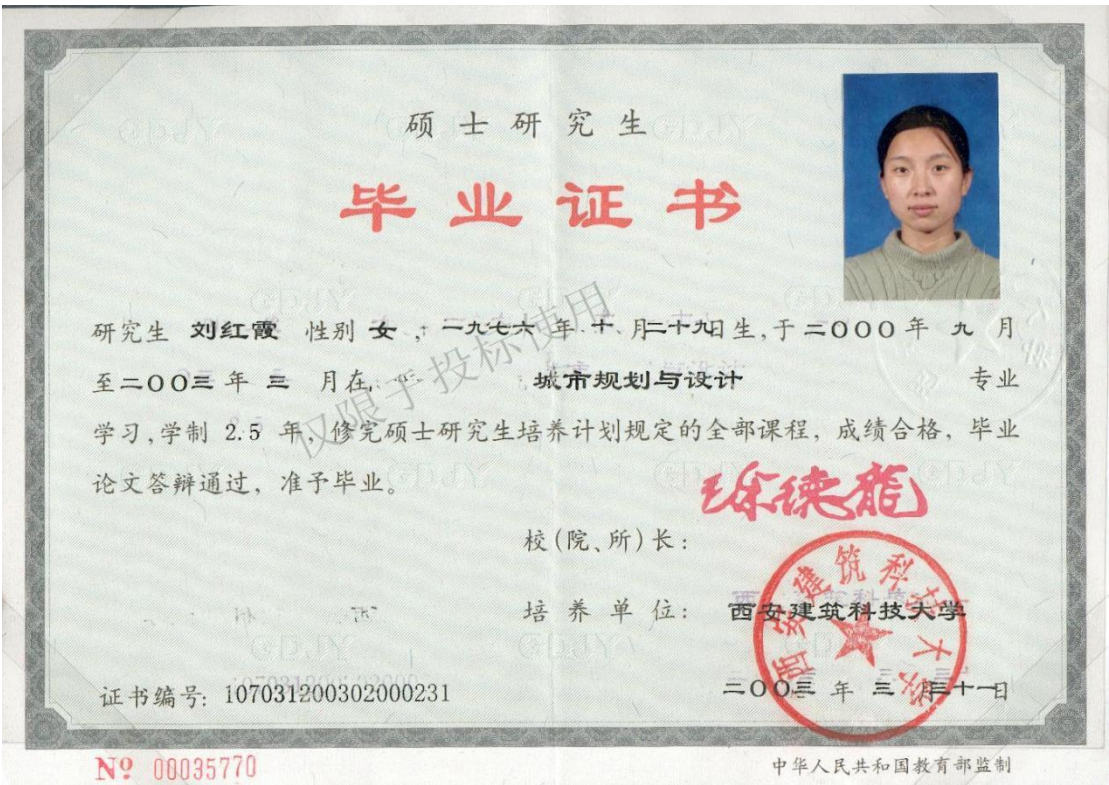 硕士研究生
毕业证书
研究生 刘红霞 性别 女 , 一九七六 年 十 月二十九日生,于二OOO年 九 月
至二OO三年 三 月在 城市规划与设计 专业
学习,学制 2.5 年,修完硕士研究生培养计划规定的全部课程,成绩合格,毕业
论文答辩通过,准予毕业。
徐德龙
校(院、所)长:
培养单位: 西安建筑科技大学
西安建筑科技大学
证书编号: 107031200302000231
二OO三 年 三 月三十一日
№ 00035770
中华人民共和国教育部监制
仅限于投标使用